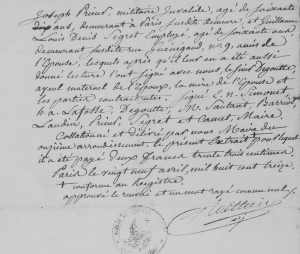 Joseph Prieur, militaire Invalide, agé de soixante
dix ans, demeurant à Paris susdite demeure, et Guillaume
Louis Denis Segret Employé, agé de soixante ans
demeurant susdite rue Guénégaud, n.º 9, amis de
l'Epouse, lesquels après qu'il leur en a été aussi
donné lecture l'ont signé avec nous, le Susd. Degoutte
ayeul maternel de l'Epoux, la mère de l'Epouse et
les parties contractantes. Signé E. n. Simonet
n. a. Degoutte, M. Sautant, Barriot
Prieur, Segret et Camet, Maire.
Collationné et délivré par nous Maire du
onzième arrondissement, le présent Extrait pour lequel
il a été payé deux francs trente trois centimes
Paris le vingt neuf avril, mil huit cent treize
conforme au Registre
approuvé le renvoi et un mot rayé comme nul